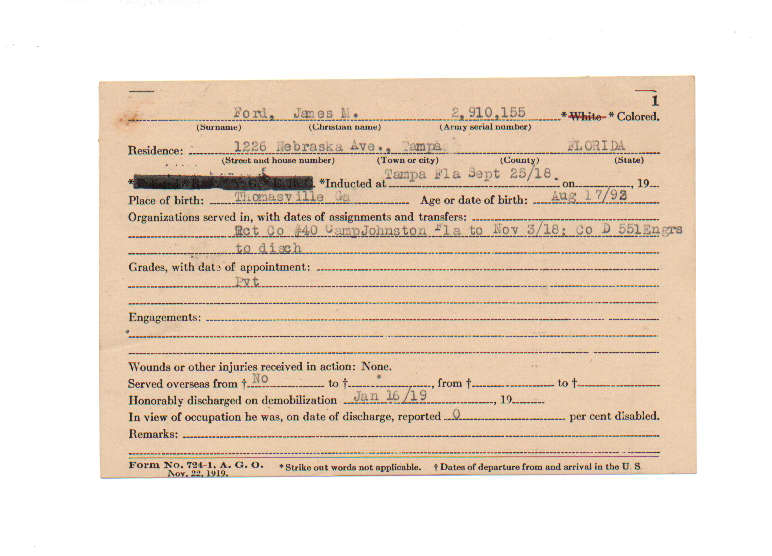 1
Ford, James M. 2,910,155 * White * Colored.
(Surname) (Christian name) (Army serial number)
Residence: 1226 Nebraska Ave., Tampa FLORIDA
(Street and house number) (Town or city) (County) (State)
* *Inducted at Tampa Fla Sept 28/18. on , 19
Place of birth: Thomasville Ga Age or date of birth: Aug 17/92
Organizations served in, with dates of assignments and transfers:
Rct Co #40 CampJohnston Fla to Nov 3/18; Co D 551Engrs
to disch
Grades, with date of appointment:
Pvt
Engagements:
Wounds or other injuries received in action: None.
Served overseas from † No to † , from † to †
Honorably discharged on demobilization Jan 16/19 , 19
In view of occupation he was, on date of discharge, reported 0 per cent disabled.
Remarks:
Form No. 724-1, A. G. O. * Strike out words not applicable. † Dates of departure from and arrival in the U. S.
Nov. 22, 1919.